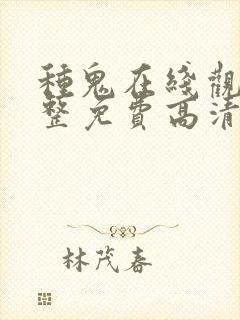 種鬼在綫觀
整免費高清
林茂春